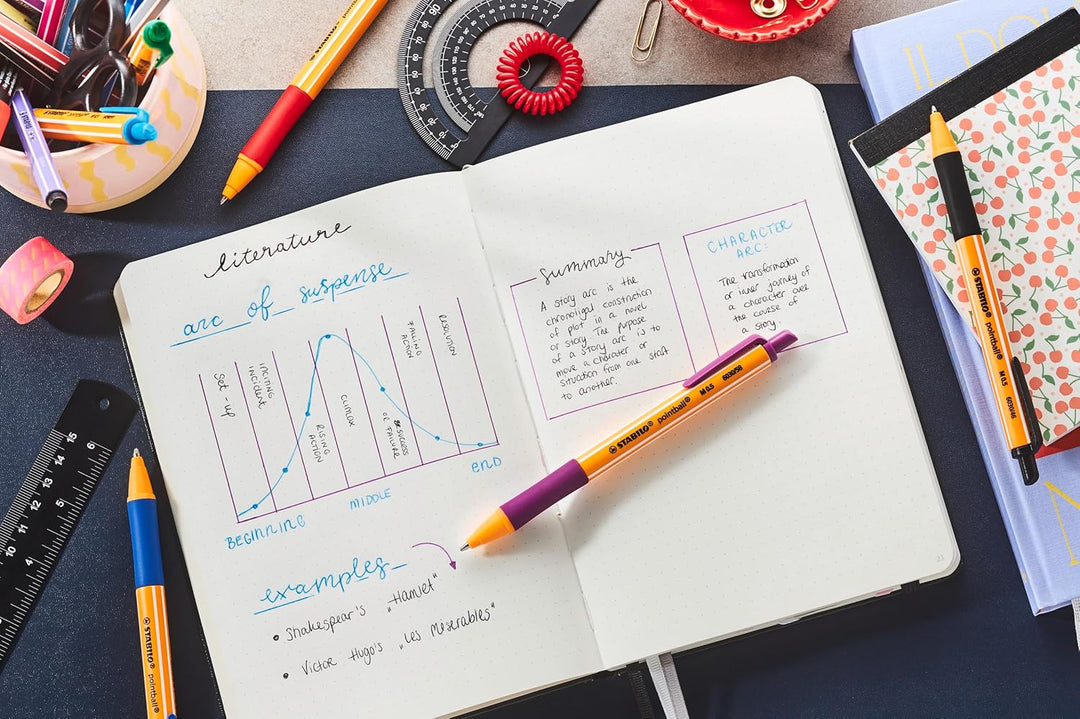 literature
arc of suspense
Set-up
INCITING
incident
RISING
ACTION
CLIMAX
SUCCESS
OR FAILURE
FALLING
ACTION
RESOLUTION
BEGINNING
MIDDLE
END
examples
• Shakespear's „Hamlet“
• Victor Hugo's „Les Miserables“
Summary
A story arc is the
chronoligal construction
of plot in a novel
or story. The purpose
of a story arc is to
move a charater or
situation from one
to another.
CHARACTER
ARC:
The transformation
or inner journey of
a character over
the course of
a story.
STABILO® pointball® M 0.5 6030/58
STABILO® pointball® M 0.5 6030/46
STABILO® pointball
10 11 12 13 14 15
5 6